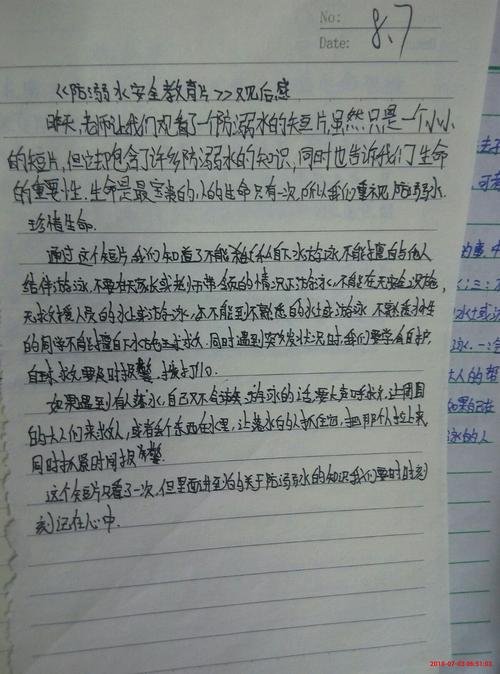 No:
Date: 8.7
《防溺水安全教育片》观后感
昨天,老师让我们观看了一个防溺水的短片,虽然只是一个小小
的短片,但它却包含了许多防溺水的知识,同时也告诉我们生命
的重要性.生命是最宝贵的,人的生命只有一次,所以我们重视防溺水.
珍惜生命.
通过这个短片,我们知道了不能私自下水游泳,不能擅自与他人
结伴游泳.不要在无家长或老师带领的情况下游泳,不能在无安全设施,
无救援人员的水域游泳,不能到不熟悉的水域游泳,不熟悉水性
的同学不能擅自下水施救.同时遇到突发状况时,我们要学会自护,
自救,求救,要及时报警,拨打110.
如果遇到有人落水,自己又不会游泳的话,要大声呼救,让周围
的大人们来救人,或者丢个东西在水里,让落水的人抓住它,把那个人拉上来,
同时抓紧时间报警.
这个短片只看了一次,但里面讲的关于防溺水的知识我们要时时刻
刻记在心中.
2018-07-03 06:51:03